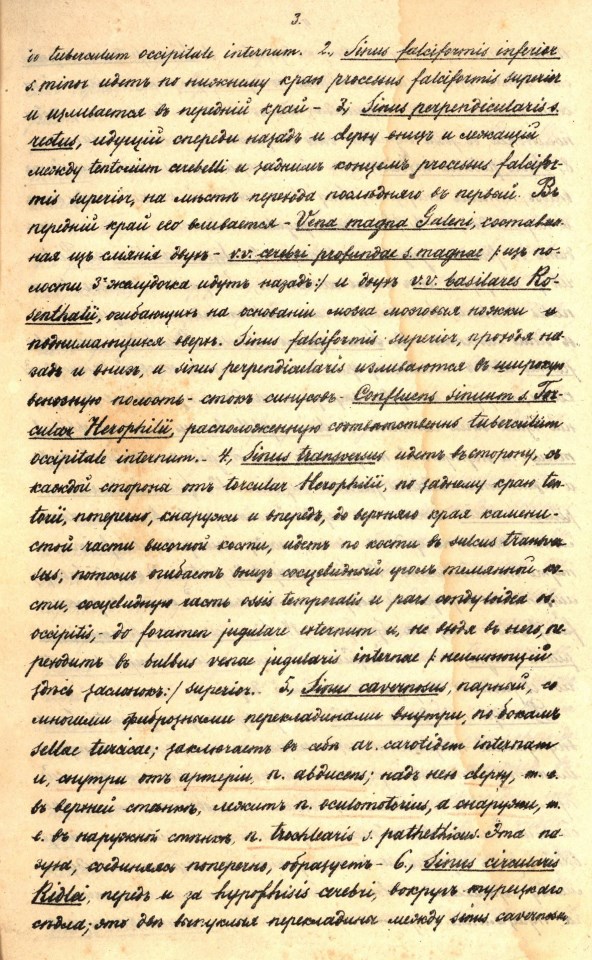 3.
to tuberculum occipitale internum. 2, Sinus falciformis inferior
s. minor идетъ по нижнему краю processus falciformis superior
и изливается въ передній край - 3, Sinus perpendicularis s.
rectus, идущій спереди назадъ и сверху внизъ и лежащій
между tentorium cerebelli и заднимъ концемъ processus falcifor-
mis superior, на мѣстѣ перехода послѣдняго въ первый. Въ
передній край его вливается - Vena magna Galeni, составлен-
ная изъ сліянія двухъ - v.v. cerebri profundae s. magnae /: изъ по-
лости 3го желудочка идутъ назадъ :/ и двухъ v.v. basilares Ro-
senthalii, огибающихъ на основаніи мозга мозговыя ножки и
поднимающихся вверхъ. Sinus falciformis superior, пройдя на-
задъ и внизъ, и sinus perpendicularis изливаются въ широкую
венозную полость - стокъ синусовъ - Confluens sinuum s. Tor-
cular Herophilii, расположенную соотвѣтственно tuberculum
occipitale internum. - 4, Sinus transversus идетъ въ сторону, съ
каждой стороны отъ torcular Herophilii, по заднему краю ten-
torii, поперечно, снаружи и впередъ, до верхняго края камени-
стой части височной кости, идетъ по кости въ sulcus transver
sus, потомъ огибаетъ внизъ сосцевидный уголъ темянной ко-
сти, сосцевидную часть ossis temporalis и pars condyloidea os.
occipitis, - до foramen jugulare externum и, не входя въ него, пе-
реходитъ въ bulbus venae jugularis internae /: неимѣющій
здѣсь заслонокъ :/ superior. 5, Sinus cavernosus, парный, со
многими фиброзными перекладинами внутри, по бокамъ
sellae turcicae; заключаетъ въ себѣ ar. carotidem internam
и, снутри отъ артеріи, n. abducens; надъ нею сверху, т. е.
въ верхней стѣнкѣ, лежитъ n. oculomotorius, а снаружи, т.
е. въ наружной стѣнкѣ, n. trochlearis s. pathethicus. Эта па-
зуха, соединяясь поперечно, образуетъ - 6, Sinus circularis
Ridlei, передъ и за hypophisis cerebri, вокругъ турецкаго
сѣдла; это двѣ выпуклыя перекладины между sinus cavernosus,